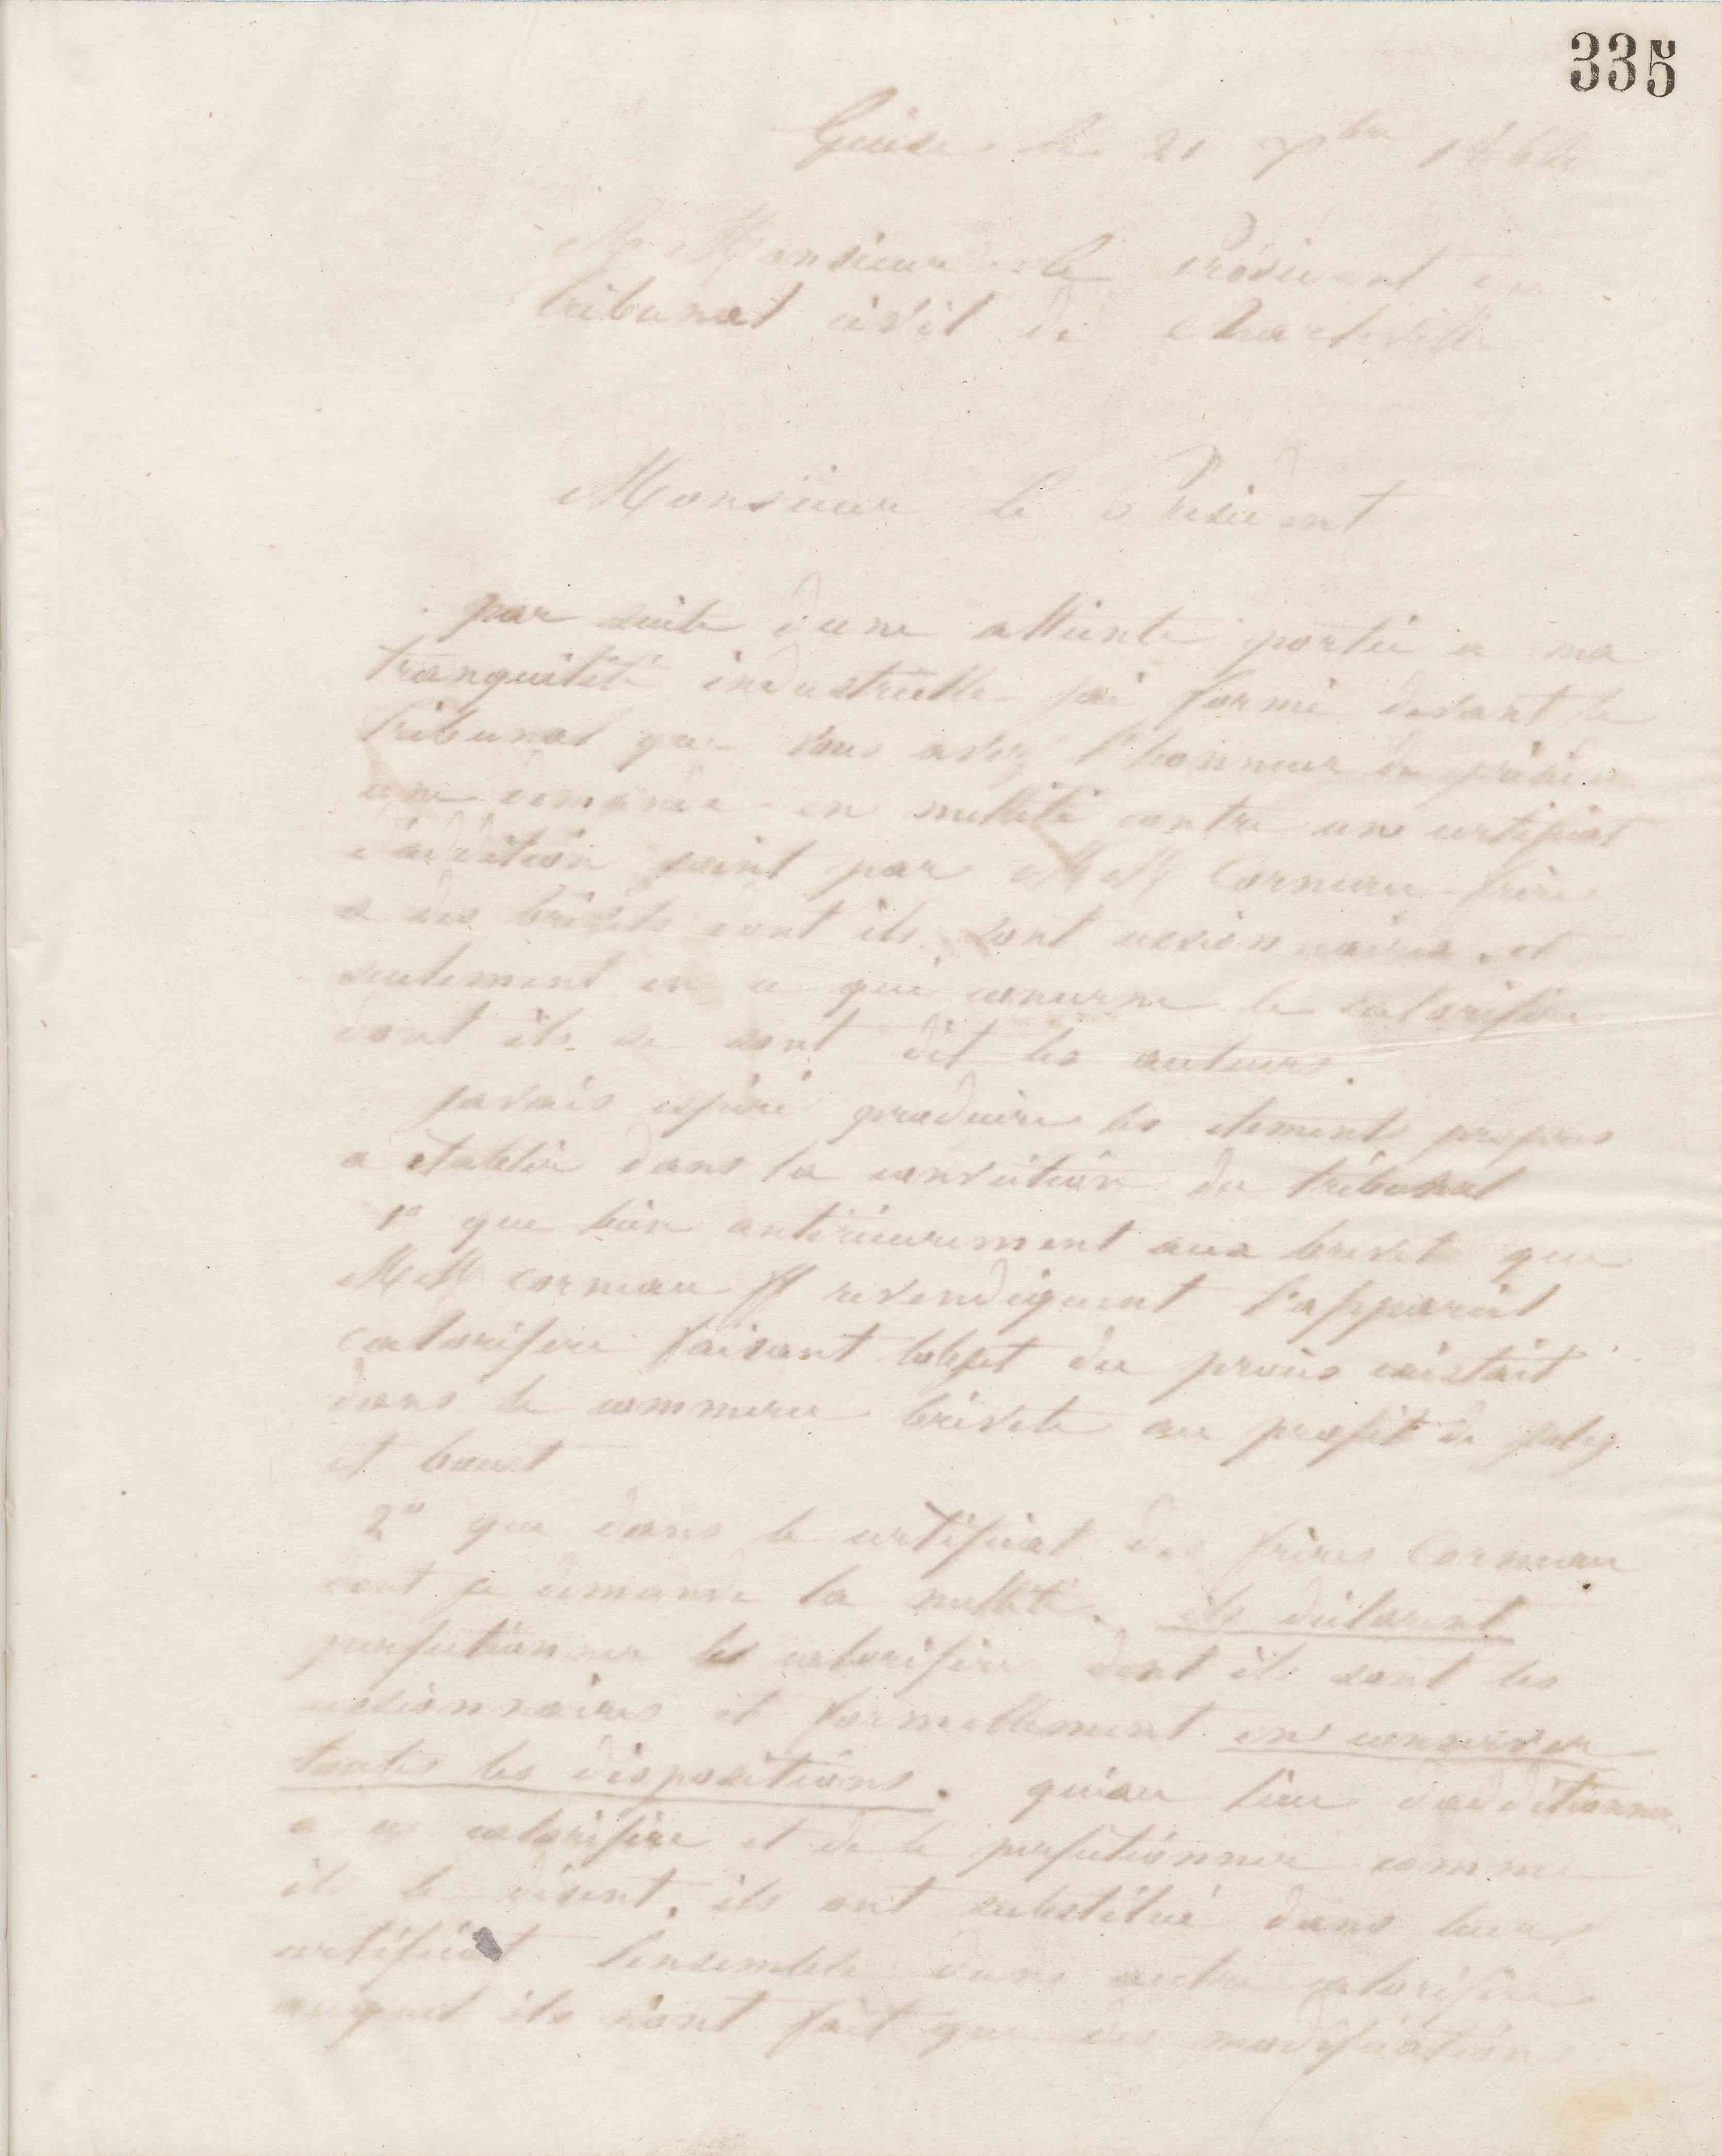 335
Guise le 21 7bre 186
A Monsieur le Président du
tribunal civil de Charleville
Monsieur le Président
par suite d'une atteinte portée a ma
tranquilité industrielle j'ai formé devant le
tribunal que vous avez l'honneur de présider
une demande en nullité contre un certificat
d'addition joint par MM Corneau frères
a des brevets dont ils sont cessionnaires, et
seulement en ce qui concerne le calorifère
dont ils se sont dit les auteurs.
javais espéré produire les element propres
a établir dans la conviction du tribunal
1° que bien antérieurement aux brevets que
MM corneau ff revendiquent l'appareil
calorifère faisant lobjet du procès existait
dans le commerce breveté au profit de
et
2° que dans le certificat des frères Corneau
dont je demande la nullité. ils déclarent
perfectionner les calorifère dont ils sont les
cessionnaires et formellement en conserver
toutes les dispositions. qu'au lieu d'additionner
a ce calorifère et de le perfectionner comme
ils le disent, ils ont substitué dans leur
certificat lensemble dun autre calorifère
auquel ils n'ont fait que des modification